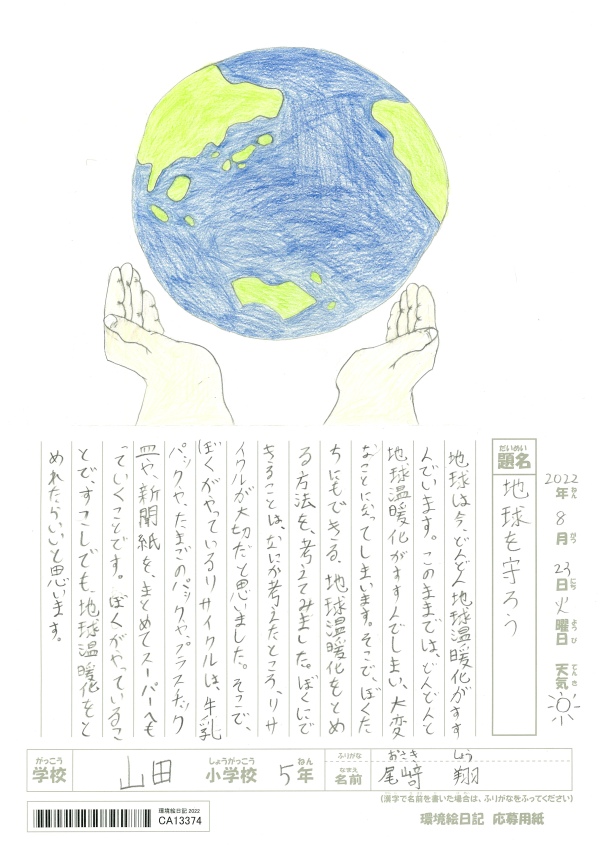 2022年ねん 8月がつ 23日にち 火曜日ようび 天気てんき
題名だいめい 地球を守ろう
地球は今、どんどん地球温暖化がすす
んでいます。このままでは、どんどんと
地球温暖化がすすんでしまい、大変
なことになってしまいます。そこで、ぼくた
ちにもできる、地球温暖化をとめ
る方法を、考えてみました。ぼくにで
きることは、なにか考えたところ、リサ
イクルが大切だと思いました。そこで、
ぼくがやっているリサイクルは、牛乳
パックや、たまごのパックや、プラスチック
皿や、新聞紙を、まとめてスーパーへも
っていくことです。ぼくがやっているこ
とで、すこしでも、地球温暖化をと
めれたらいいと思います。
がっこう しょうがっこう ねん ふりがな おさき しょう
学校 山田 小学校 5年 なまえ 名前 尾﨑 翔
(漢字で名前を書いた場合は、ふりがなをふってください)
環境絵日記 2022
CA13374
環境絵日記 応募用紙